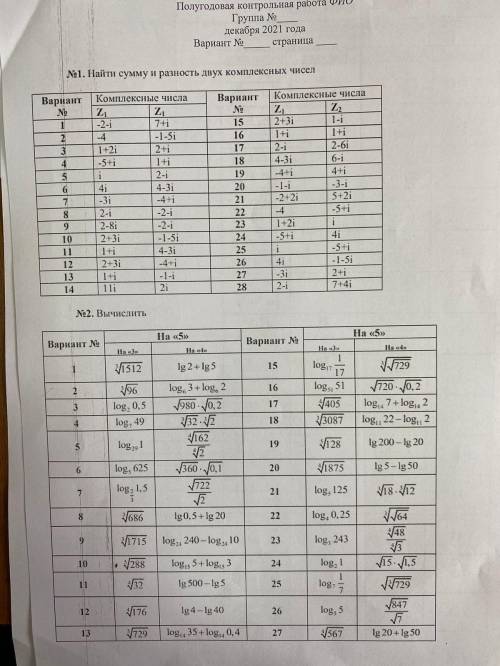 Полугодовая контрольная работа ФИО
Группа №____
декабря 2021 года
Вариант №_____ страница ____
№1. Найти сумму и разность двух комплексных чисел
Вариант № Комплексные числа Вариант № Комплексные числа
Z₁ Z₁ Z₁ Z₂
1 -2-i 7+i 15 2+3i 1-i
2 -4 -1-5i 16 1+i 1+i
3 1+2i 2+i 17 2-i 2-6i
4 -5+i 1+i 18 4-3i 6-i
5 i 2-i 19 -4+i 4+i
6 4i 4-3i 20 -1-i -3-i
7 -3i -4+i 21 -2+2i 5+2i
8 2-i -2-i 22 -4 -5+i
9 2-8i -2-i 23 1+2i i
10 2+3i -1-5i 24 -5+i 4i
11 1+i 4-3i 25 i -5+i
12 2+3i -4+i 26 4i -1-5i
13 1+i -1-i 27 -3i 2+i
14 11i 2i 28 2-i 7+4i
№2. Вычислить
Вариант № На «5» Вариант № На «5»
На «3» На «4» На «3» На «4»
1 ∛1512 lg 2 + lg 5 15 log₁₇ 1/17 √729
2 √96 log₆ 3 + log₆ 2 16 log₅₁ 51 √720 · √0,2
3 log₂ 0,5 √980 · √0,2 17 √405 log₁₄ 7 + log₁₄ 2
4 log₇ 49 √32 · √2 18 ∛3087 log₁₁ 22 − log₁₁ 2
5 log₂₉ 1 √162/√2 19 √128 lg 200 − lg 20
6 log₅ 625 √360 · √0,1 20 √1875 lg 5 − lg 50
7 1,5 √722/√2 21 log₅ 125 √18 · √12
8 ∛686 lg 0,5 + lg 20 22 log₄ 0,25 √√64
9 ∛1715 log₂₄ 240 − log₂₄ 10 23 log₃ 243 √48/√3
10 √288 log₁₅ 5 + log₁₅ 3 24 log₂ 1 √15 · √1,5
11 √32 lg 500 − lg 5 25 log₇ 1/7 √√729
12 √176 lg 4 − lg 40 26 log₅ 5 √847/√7
13 √729 log₁₄ 35 + log₁₄ 0,4 27 √567 lg 20 + lg 50